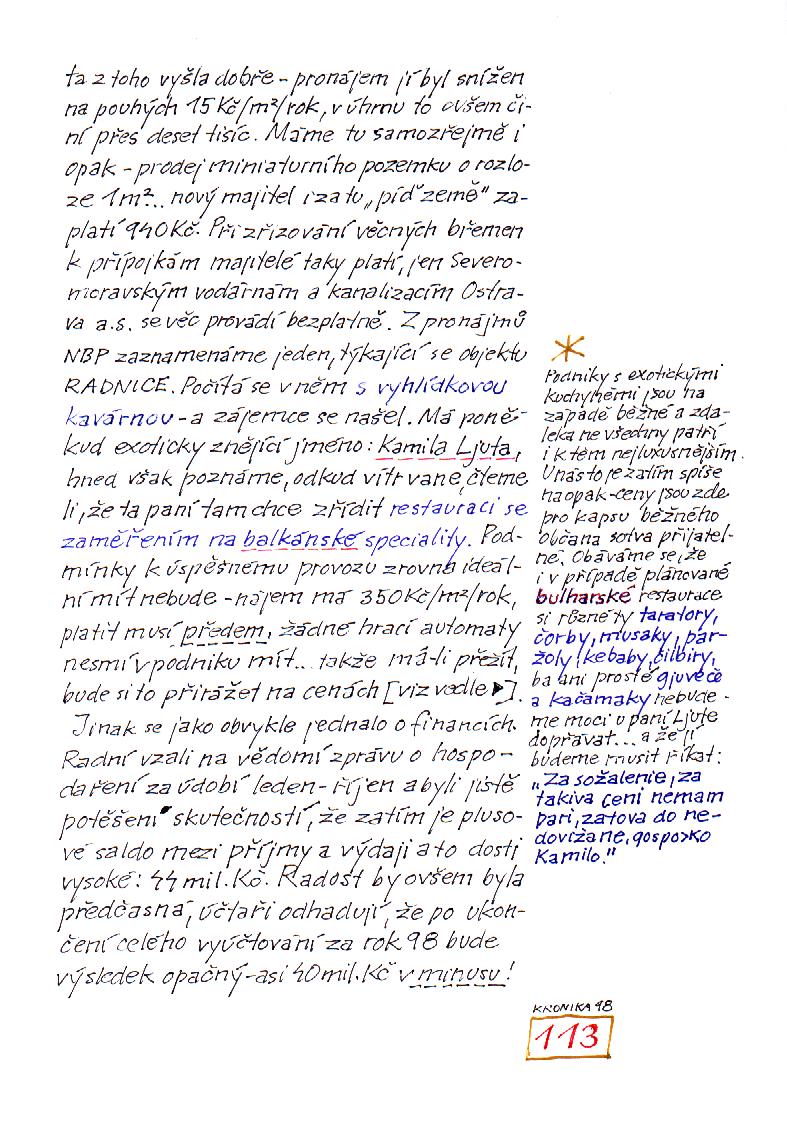 ta z toho vyšla dobře - pronájem jí byl snížen
na pouhých 15 Kč/m²/rok, v úhrnu to ovšem či-
ní přes deset tisíc. Máme tu samozřejmě i
opak - prodej miniaturního pozemku o rozlo-
ze 1m²... nový majitel i za tu „píď země" za-
platí 940 Kč. Při zřizování věcných břemen
k přípojkám majitelé taky platí, jen Severo-
moravským vodárnám a kanalizacím Ostra-
va a.s. se věc provádí bezplatně. Z pronájmů
NBP zaznamenáme jeden, týkající se objektu
RADNICE. Počítá se v něm s vyhlídkovou
kavárnou - a zájemce se našel. Má poně-
kud exoticky znějící jméno: Kamila Ljuta,
hned však poznáme, odkud vítr vane, čteme
li, že ta paní tam chce zřídit restauraci se
zaměřením na balkánské speciality. Pod-
mínky k úspěšnému provozu zrovna ideál-
ní mít nebude - nájem má 350 Kč/m²/rok,
platit musí předem, žádné hrací automaty
nesmí v podniku mít... takže má-li přežít,
bude si to přirážet na cenách [viz vedle ▶].
Jinak se jako obvykle jednalo o financích.
Radní vzali na vědomí zprávu o hospo-
daření za údobí leden - říjen a byli jistě
potěšeni skutečností, že zatím je pluso-
vé saldo mezi příjmy a výdaji a to dosti
vysoké: 44 mil. Kč. Radost by ovšem byla
předčasná, účtaři odhadují, že po ukon-
čení celého vyúčtování za rok 98 bude
výsledek opačný - asi 40 mil. Kč v minusu!
*
Podniky s exotickými
kuchyněmi jsou na
západě běžné a zda-
leka ne všechny patří
i k těm nejluxusnějším.
U nás to je zatím spíše
naopak - ceny jsou zde
pro kapsu běžného
občana sotva přijatel-
né. Obáváme se, že
i v případě plánované
bulharské restaurace
si různé ty taratory,
čorby, musaky, par-
žoly, kebaby, čilbiry,
ba ani prosté gjuveče
a kačamaky nebude-
me moci u paní Ljute
dopřávat... a že jí
budeme muset říkat:
„Za sožalenie, za
takiva ceni nemam
pari, zatova do ne-
dovižane, gospožo
Kamilo."
KRONIKA 98
113